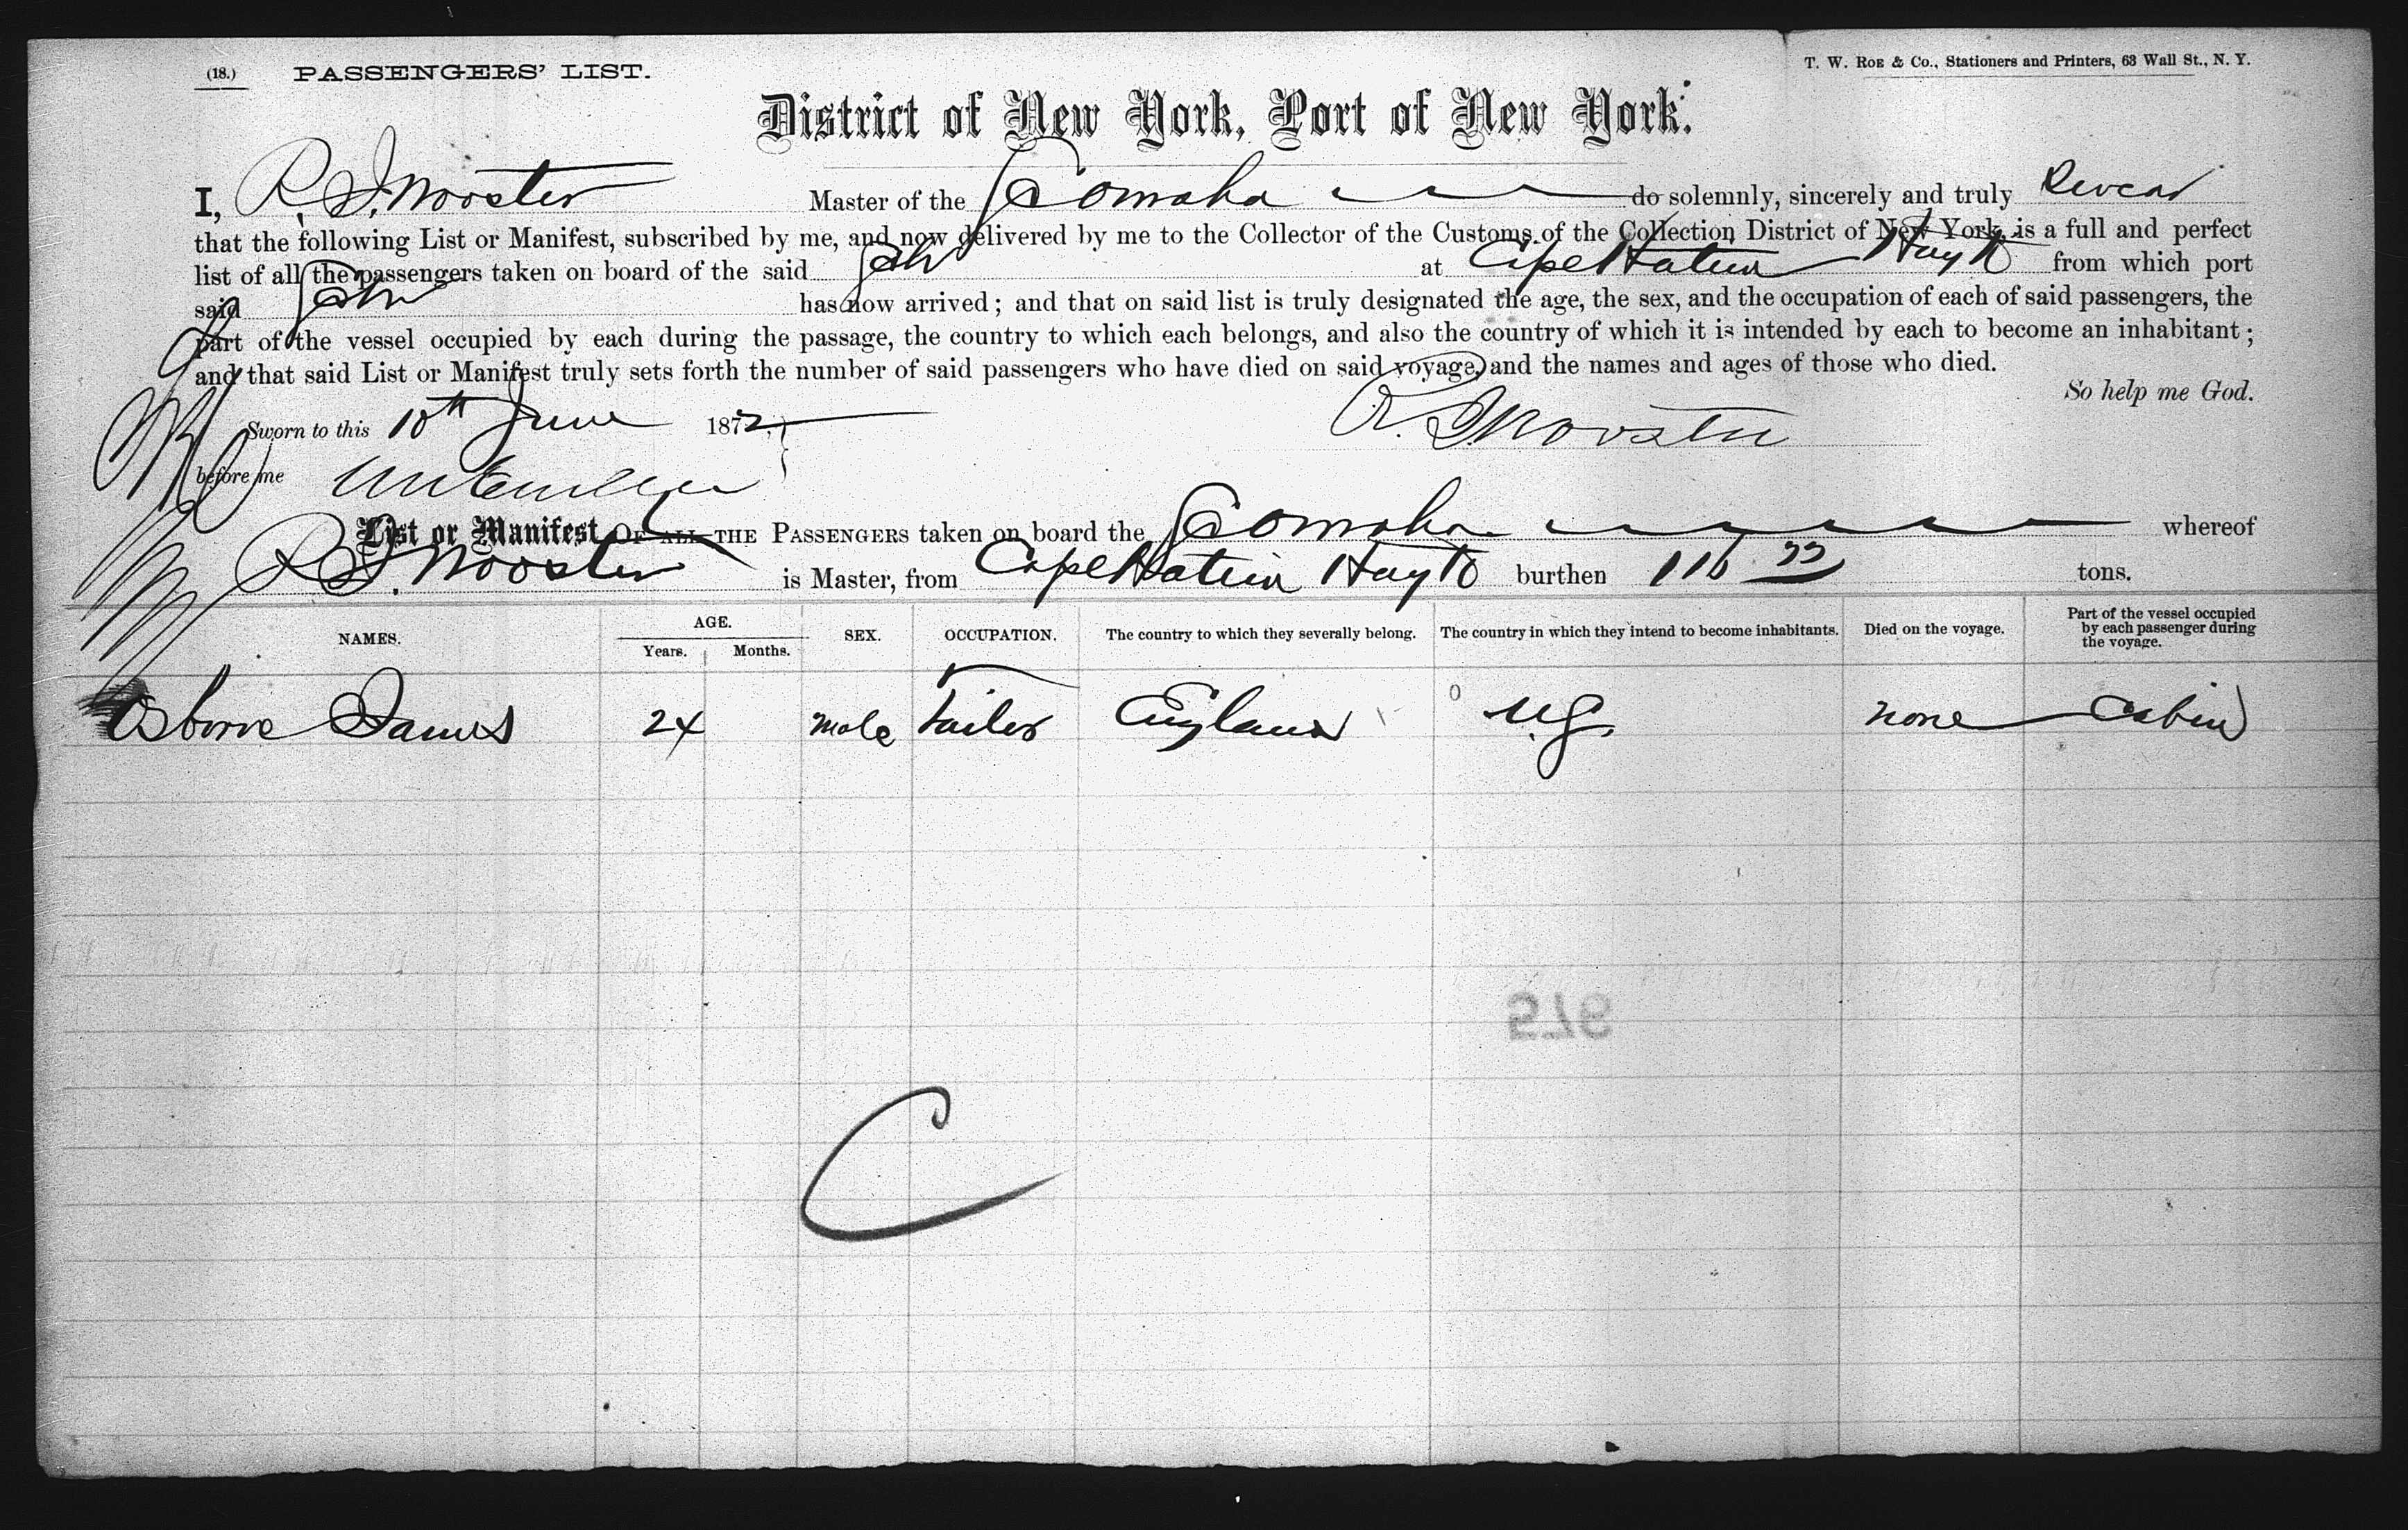 (18.) PASSENGERS' LIST. T. W. ROE & Co., Stationers and Printers, 63 Wall St., N. Y.
District of New York, Port of New York.
I, R. S. Wooster Master of the do solemnly, sincerely and truly Swear
that the following List or Manifest, subscribed by me, and now delivered by me to the Collector of the Customs of the Collection District of New York, is a full and perfect
list of all the passengers taken on board of the said Schr at Cape Hatien Hayti from which port
said Schr has now arrived; and that on said list is truly designated the age, the sex, and the occupation of each of said passengers, the
part of the vessel occupied by each during the passage, the country to which each belongs, and also the country of which it is intended by each to become an inhabitant;
and that said List or Manifest truly sets forth the number of said passengers who have died on said voyage, and the names and ages of those who died.
So help me God.
Sworn to this 10th June 1872, R. S. Wooster
before me
List or Manifest OF ALL THE PASSENGERS taken on board the whereof
R. S. Wooster is Master, from Cape Hatien Hayti burthen 116 tons.
NAMES. AGE. Years. Months. SEX. OCCUPATION. The country to which they severally belong. The country in which they intend to become inhabitants. Died on the voyage. Part of the vessel occupied by each passenger during the voyage.
Osborne James 24 Male Tailor England U.S. none Cabin
975
C